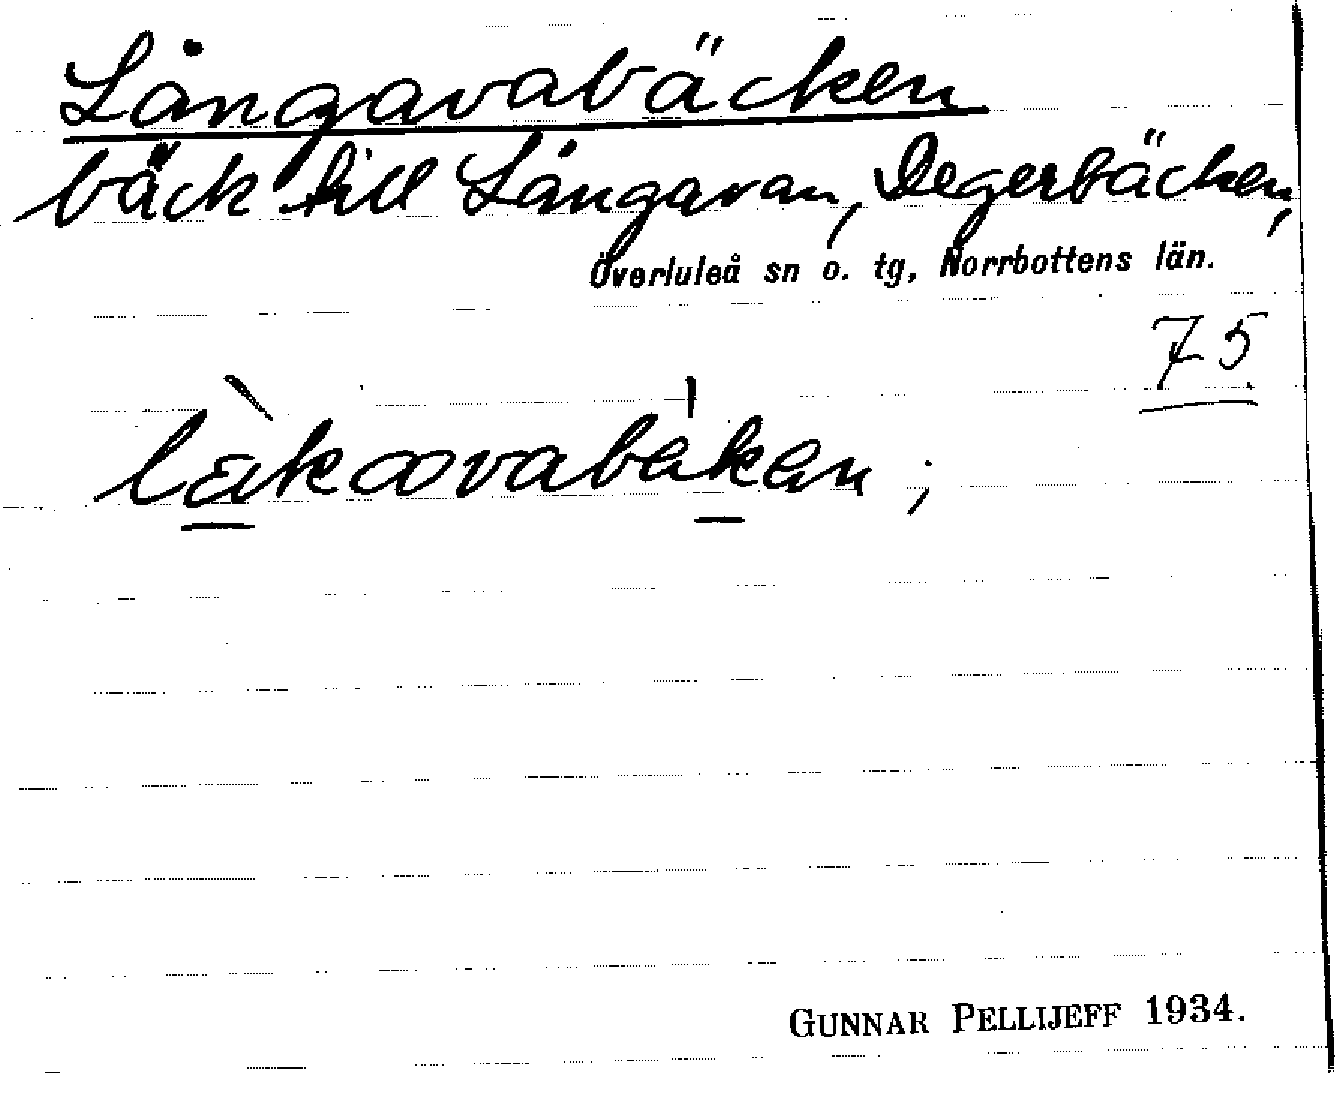 Långavabäcken
bäck till Långavan, Degerbäcken,
Överluleå sn o. tg, Norrbottens län.
75
GUNNAR PELLIJEFF 1934.